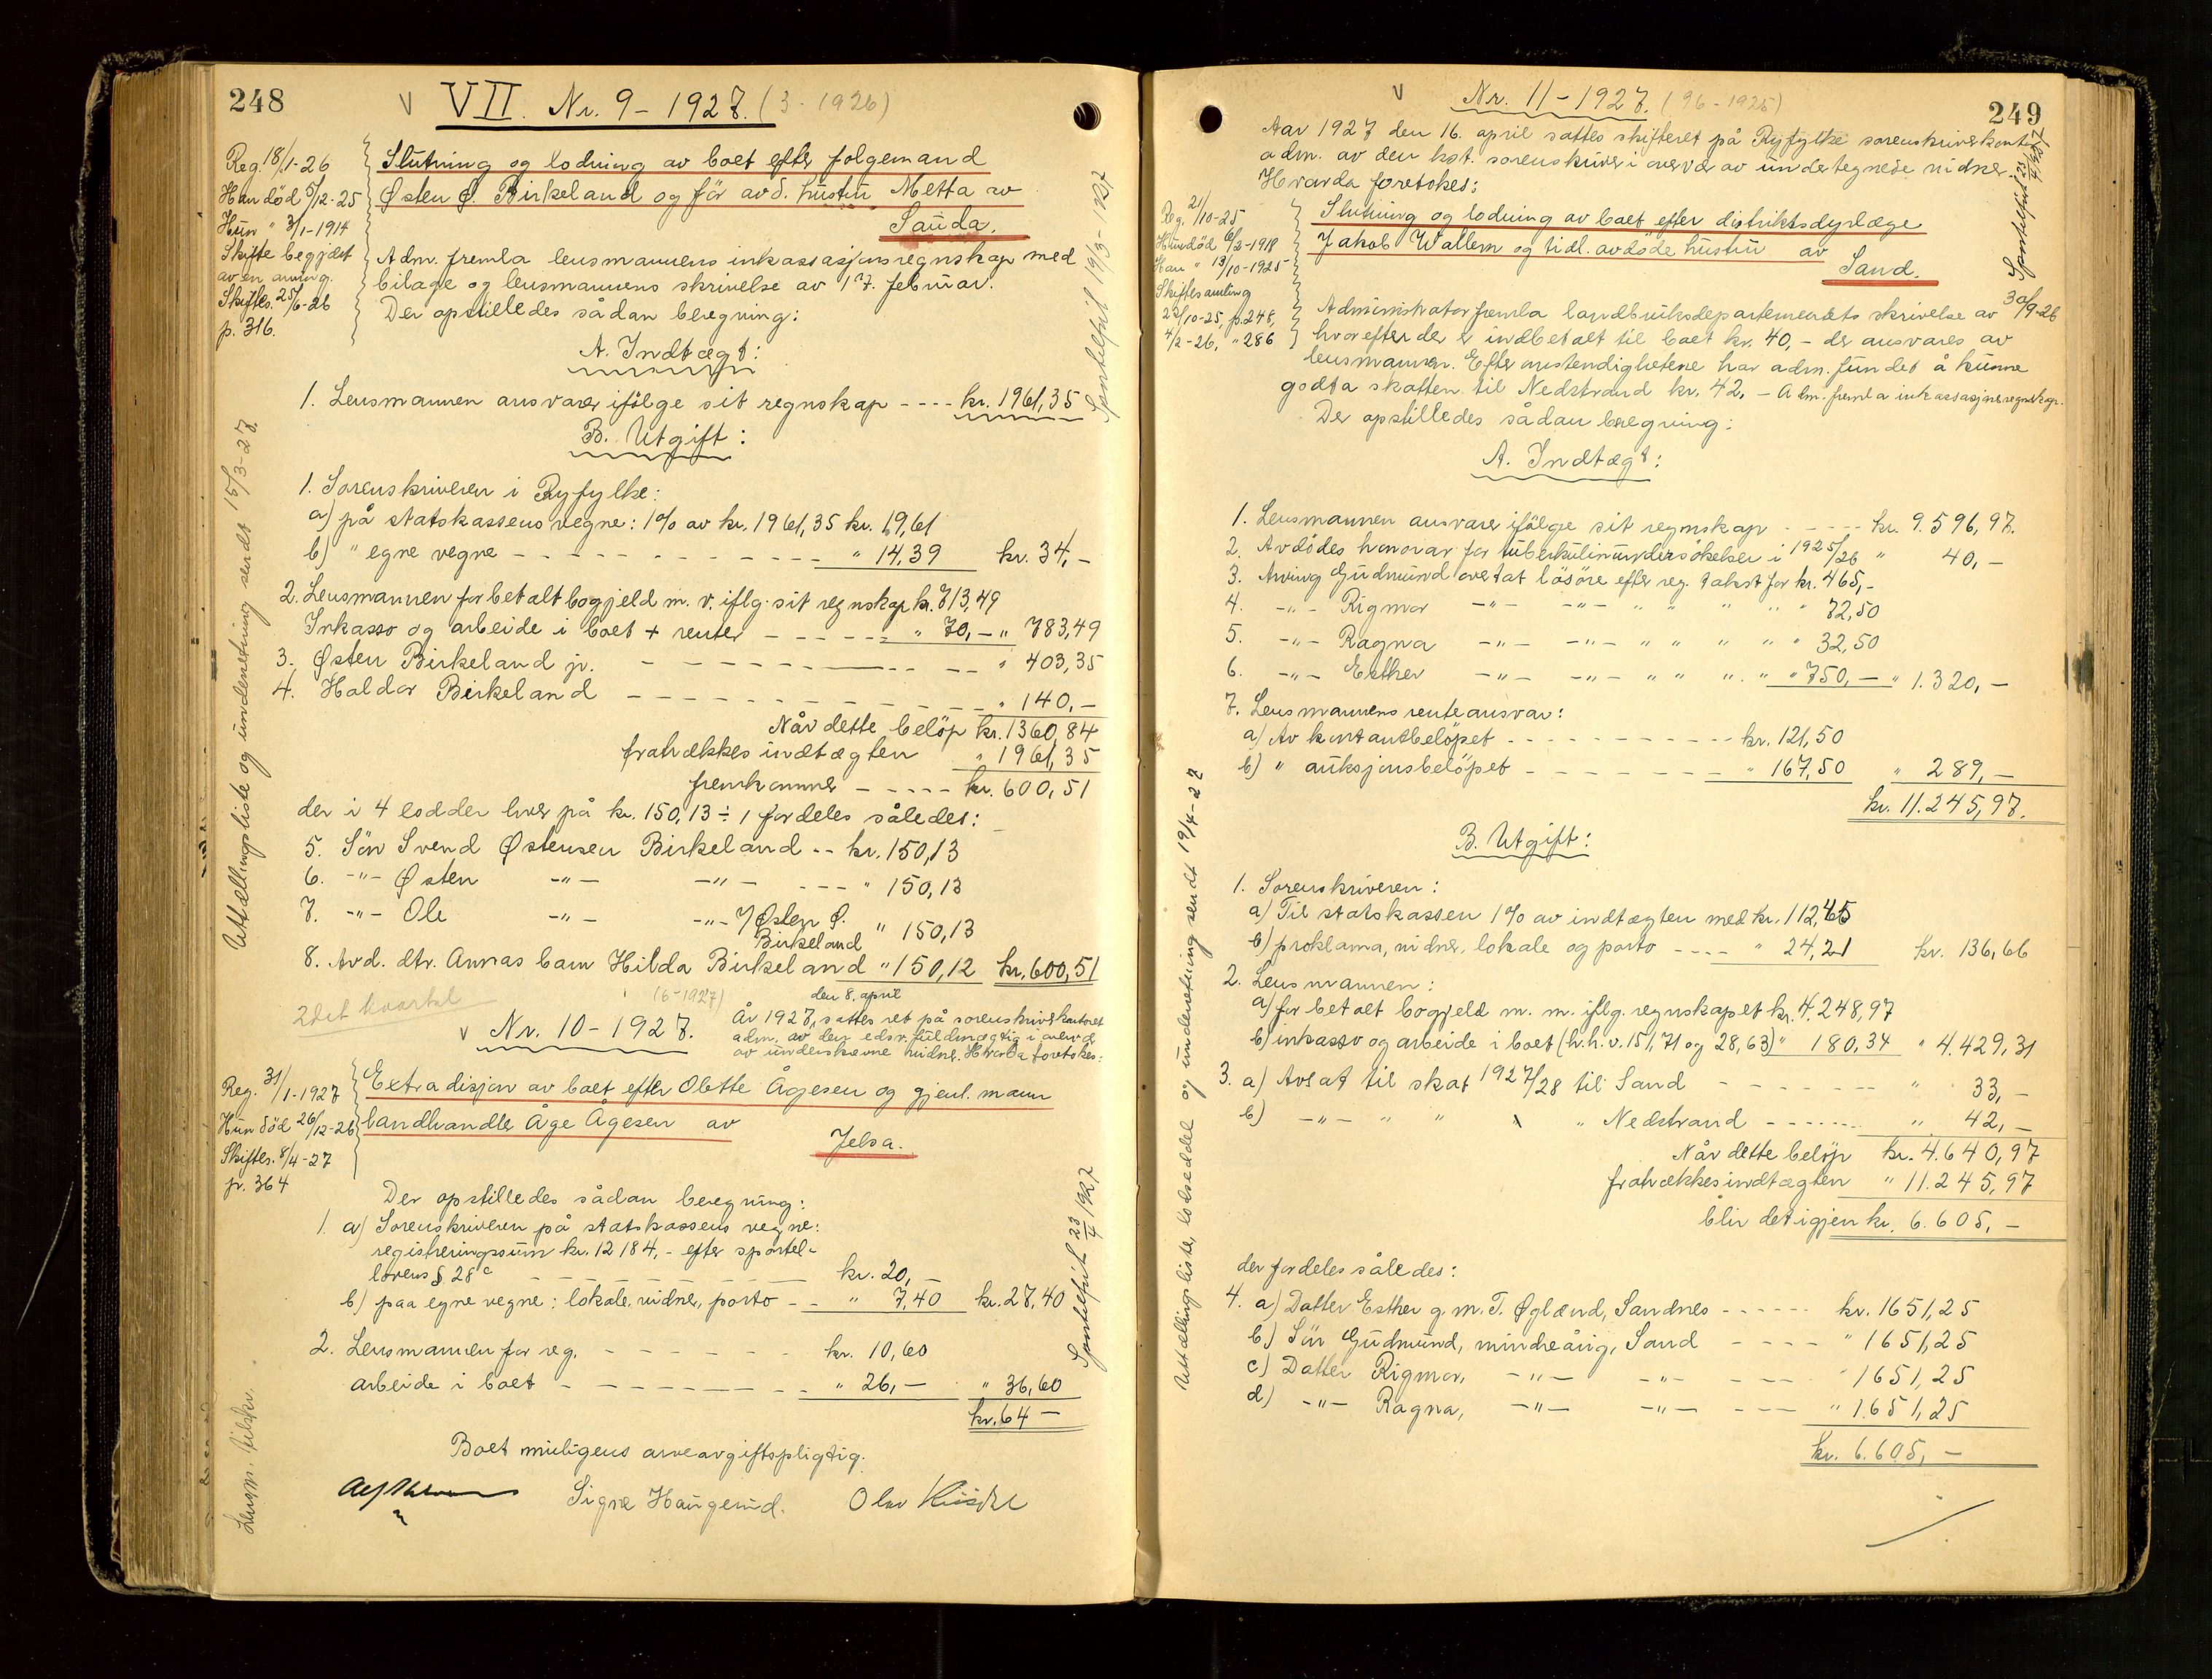 248
V VII. Nr. 9 - 1927. (3 - 1926)
Reg. 18/1-26
Han död 5/12-25
Hun " 3/1-1914
Skifte begjært
av en arving.
Skiftes. 25/6-26
p. 316.
Slutning og lodning av boet efter folgemand
Østen Ø. Birkeland og för avd. hustru Metta av
Sauda.
Adm. fremla lensmannens inkassasjonsregnskap med
bilage og lensmannens skrivelse av 17. februar.
Der opstilledes sådan beregning:
A. Indtægt:
1. Lensmannen ansvarer ifölge sit regnskap ---- kr. 1961,35
B. Utgift:
1. Sorenskriveren i Ryfylke:
a) på statskassens vegne: 1% av kr. 1961,35 kr. 19,61
b) " egne vegne - - - - - - - " 14,39 kr. 34,-
2. Lensmannen for betalt bogjeld m. v. iflg. sit regnskap kr. 713,49
Inkasso og arbeide i boet + renter - - - - " 70,- " 783,49
3. Østen Birkeland jr. - - - - - - " 403,35
4. Haldor Birkeland - - - - - - " 140,-
Når dette belöp kr. 1360,84
fratrækkes indtægten " 1961,35
fremkommer - - - - kr. 600,51
der i 4 lodder hver på kr. 150,13 ÷ 1 fordeles således:
5. Sön Svend Østensen Birkeland -- kr. 150,13
6. -"- Østen -"- -"- --- " 150,13
7. -"- Ole -"- -"- v/ Østen Ø.
Birkeland " 150,13
8. Avd. dtr. Annas barn Hilda Birkeland " 150,12 kr. 600,51
Uttællingsliste og underretning sendt 15/3-27.
Sportelført 19/3-1927
2det kvartal
(6-1927)
V Nr. 10 - 1927.
den 8. april
År 1927, sattes ret på sorenskriverkontoret
adm. av den edsv. fuldmægtig i overvær
av underskrevne vidner. Hvorda foretokes:
Reg. 31/1-1927
Hun död 26/12-26
Skiftes. 8/4-27
p. 364
Extradisjon av boet efter Olette Ågesen og gjenl. mann
landhandler Åge Ågesen av
Jelsa.
Der opstilledes sådan beregning:
1. a) Sorenskriveren på statskassens vegne:
registreringssum kr. 12184,- efter sportel-
lovens § 28 c - - - - - - kr. 20,-
b) paa egne vegne: lokale, vidner, porto - - " 7,40 kr. 27,40
2. Lensmannen for reg. - - - - - - kr. 10,60
arbeide i boet - - - - - - - " 26,- " 36,60
kr. 64 -
Boet muligens arveavgiftspligtig.
Signe Haugerud. Olav
Lensm. tilskr.
Sportelført 23/4 1927
249
V Nr. 11 - 1927. (96 - 1925)
Aar 1927 den 16. april sattes skifteret på Ryfylke sorenskriverkontor
adm. av den kst. sorenskriver i overvær av undertegnede vidner.
Hvorda foretokes:
Reg. 21/10-25
Hun död 6/2-1918
Han " 13/10-1925
Skiftesamling
22/10-25, p. 248,
4/2-26, " 286
Slutning og lodning av boet efter distriktsdyrlæge
Jakob Wallem og tidl. avdöde hustru av
Sand.
Administrator fremla landbruksdepartementets skrivelse av 30/9-26
hvorefter der er indbetalt til boet kr. 40,- der ansvares av
lensmannen. Efter omstendighetene har adm. fundet å kunne
godta skatten til Nedstrand kr. 42,- Adm. fremla inkassasjonsregnskap.
Der opstilledes sådan beregning:
A. Indtægt:
1. Lensmannen ansvarer ifölge sit regnskap - - - - kr. 9.596,97.
2. Avdödes honorar for tuberkulinundersökelser i 1925/26 " 40,-
3. Arving Gudmund overtat lösöre efter reg. takst for kr. 465,-
4. -"- Rigmor -"- -"- " " " " " 72,50
5. -"- Ragna -"- -"- " " " " " 32,50
6. -"- Esther -"- -"- " " " " " 750,- " 1.320,-
7. Lensmannens renteansvar:
a) Av kontantbelöpet - - - - - - - kr. 121,50
b) " auksjonsbelöpet - - - - - - " 167,50 " 289,-
kr. 11.245,97.
B. Utgift:
1. Sorenskriveren:
a) Til statskassen 1% av indtægten med kr. 112,45
b) proklama, vidner, lokale og porto ---- " 24,21 kr. 136,66
2. Lensmannen:
a) for betalt bogjeld m. m. iflg. regnskapet kr. 4.248,97
b) inkasso og arbeide i boet (h.h.v. 151,71 og 28,63) " 180,34 " 4.429,31
3. a) Avsat til skat 1927/28 til Sand - - - - - " 33,-
b) -"- " " " " Nedstrand - - - - - " 42,-
Når dette belöp kr. 4.640,97
fratrækkes indtægten " 11.245,97
blir det igjen kr. 6.605,-
der fordeles således:
4. a) Datter Esther g. m. T. Øglænd, Sandnes - - - - - kr. 1651,25
b) Sön Gudmund, mindreårig, Sand - - - - " 1651,25
c) Datter Rigmor, -"- -"- - - - " 1651,25
d) -"- Ragna, -"- -"- - - - " 1651,25
kr. 6.605,-
Uttællingsliste, lodseddel og underretning sendt 19/4-27
Sportelført 23/4 1927